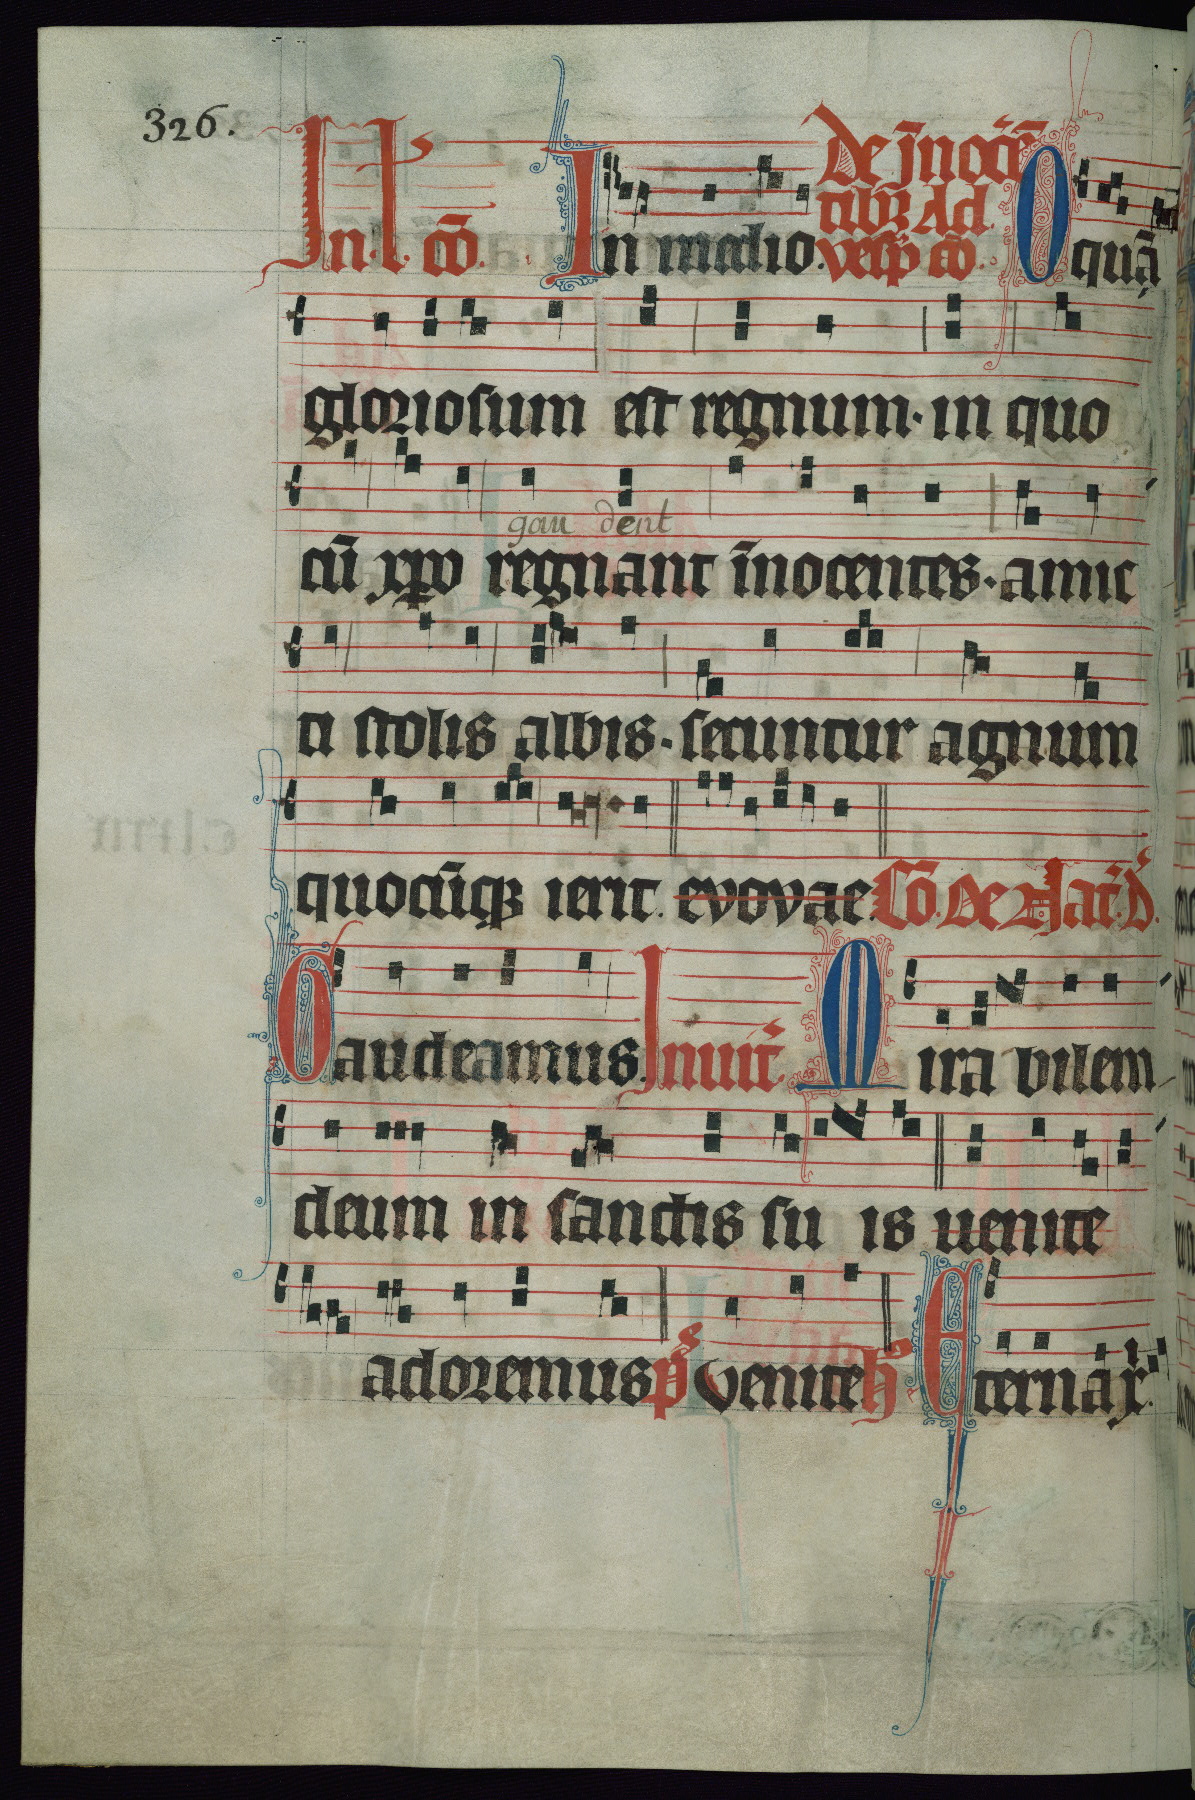 326.
In·l· cō. In medio. De īnocē tibꝫ Ad vesp̄ cō. O quā
gloriosum est regnum· in quo
gau dent
cū xp̄o regnant īnocentes· amic
ti stolis albis· secuntur agnum
quocūqꝫ ierit. evovae. Cō. De Nat̄. d̄.
Gaudeamus. Inuit̄. Mira bilem
deum in sanctis su is uenite
adoremus p̄s Venite h̄ Eterna x̄.